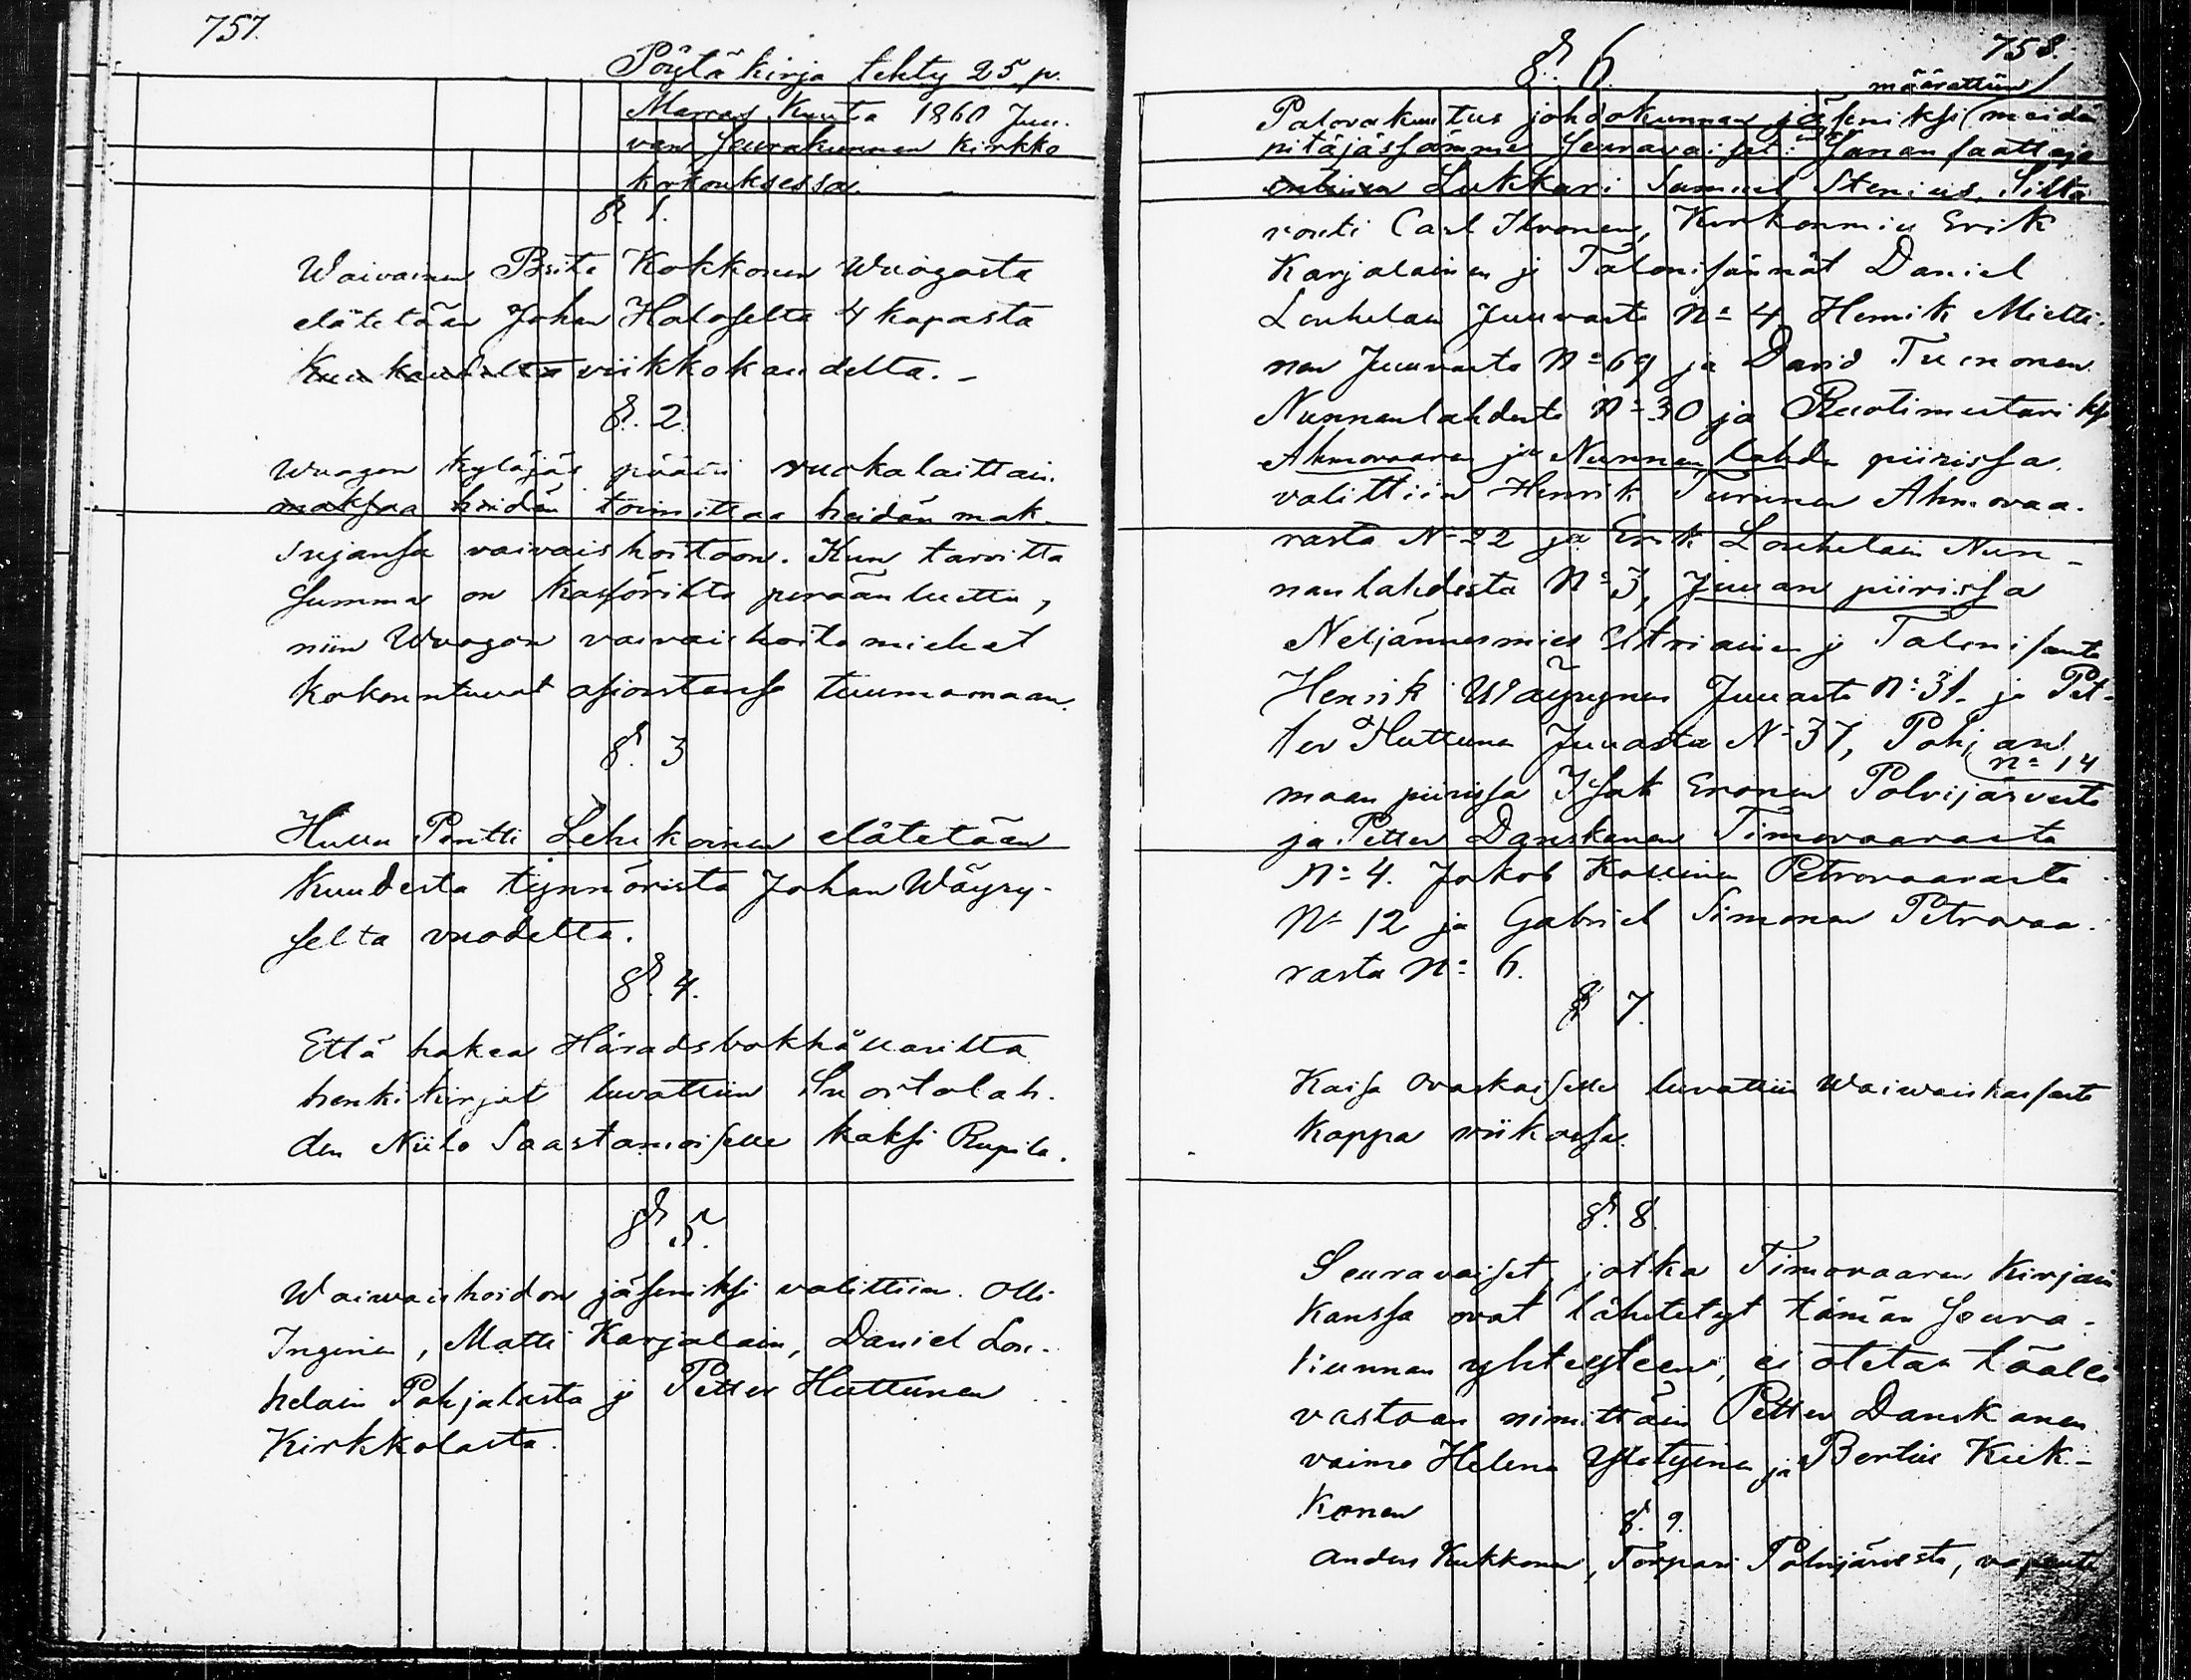 757.
Pöytäkirja tehty 25 p.
Marras Kuuta 1860 Juu-
van Seurakunnan Kirkko
kokouksessa.
§. 1.
Waivainen Brita Kokkonen Wuogosta
elätetään Johan Haloselta 4 kapasta
Kuu kaudelta viikkokaudelta. -
§. 2.
Wuogon kyläjäs päätti ruokalaittain
maksaa heidän toimittaa heidän mak-
sujansa vaivaishoitoon. Kun tarvitta
summa on kassörilta perään luettu,
niin Wuogon vaivaishoitomiehet
kokountuvat asioistansa tuumamaan.
§. 3
Hullu Pentti Lehikoinen elätetään
Kuudesta tynnöristä Johan Wäyry-
seltä vuodelta.
§. 4.
Että hakea Häradsbokhållarilta
henkikirjat luvattiin Suoitolah-
den Niilo Saastamoiselle kaksi Rupila.
§. 5.
Waivaishoidon jäseniksi valittiin. Olli
Inginen, Matti Karjalain, Daniel Lou-
helain Pohjalasta ja Petter Huttunen
Kirkkolasta.
758.
§. 6.
määrättiin
Palovakuutus johdokunnan jäseniksi meidän
pitäjässämme seuravaiset: Sanansaattaja
Lukkari Samuel Stenius, Silta
vouti Carl Ikonen, Kirkonmies Erik
Karjalainen ja Talonisännät Daniel
Louhelain Juuvasta No 4 Henrik Mietti-
nen Juuvasta No 69 ja David Tuononen
Nunnanlahdesta No 30 ja Ruotimestariksi
Ahmovaaran ja Nunnanlahden piirissä
valittiin Henrik Turunen Ahmovaa-
rasta No 22 ja Erik Louhelain Nun-
nanlahdesta No 3, Juuan piirissä
Neljännesmies Utriainen ja Talonisäntä
Henrik Wäyrynen Juuasta No 31. ja Pet-
ter Huttunen Juuasta No 37, Pohjan
No 14
maan piirissä Isak Eronen Polvijärvestä
ja Petter Danskanen Timovaarasta
No 4. Jakob Kallinen Petrovaarasta
No 12 ja Gabriel Simonen Petrovaa-
rasta No 6.
§ 7.
Kaisa Ovaskaiselle luvattiin Waivaiskassasta
Kappa viikossa.
§. 8.
Seuravaiset, jotka Timovaaran kirjain
kanssa ovat lähetetyt tämän seura-
kunnan yhteyteen, ei oteta täällä
vastaan nimittäin Petter Danskanen
vaimo Helena Ylätyinen ja Bertius Kuk-
konen
§. 9.
Anders Kukkonen, Torpari Polvijärvestä,